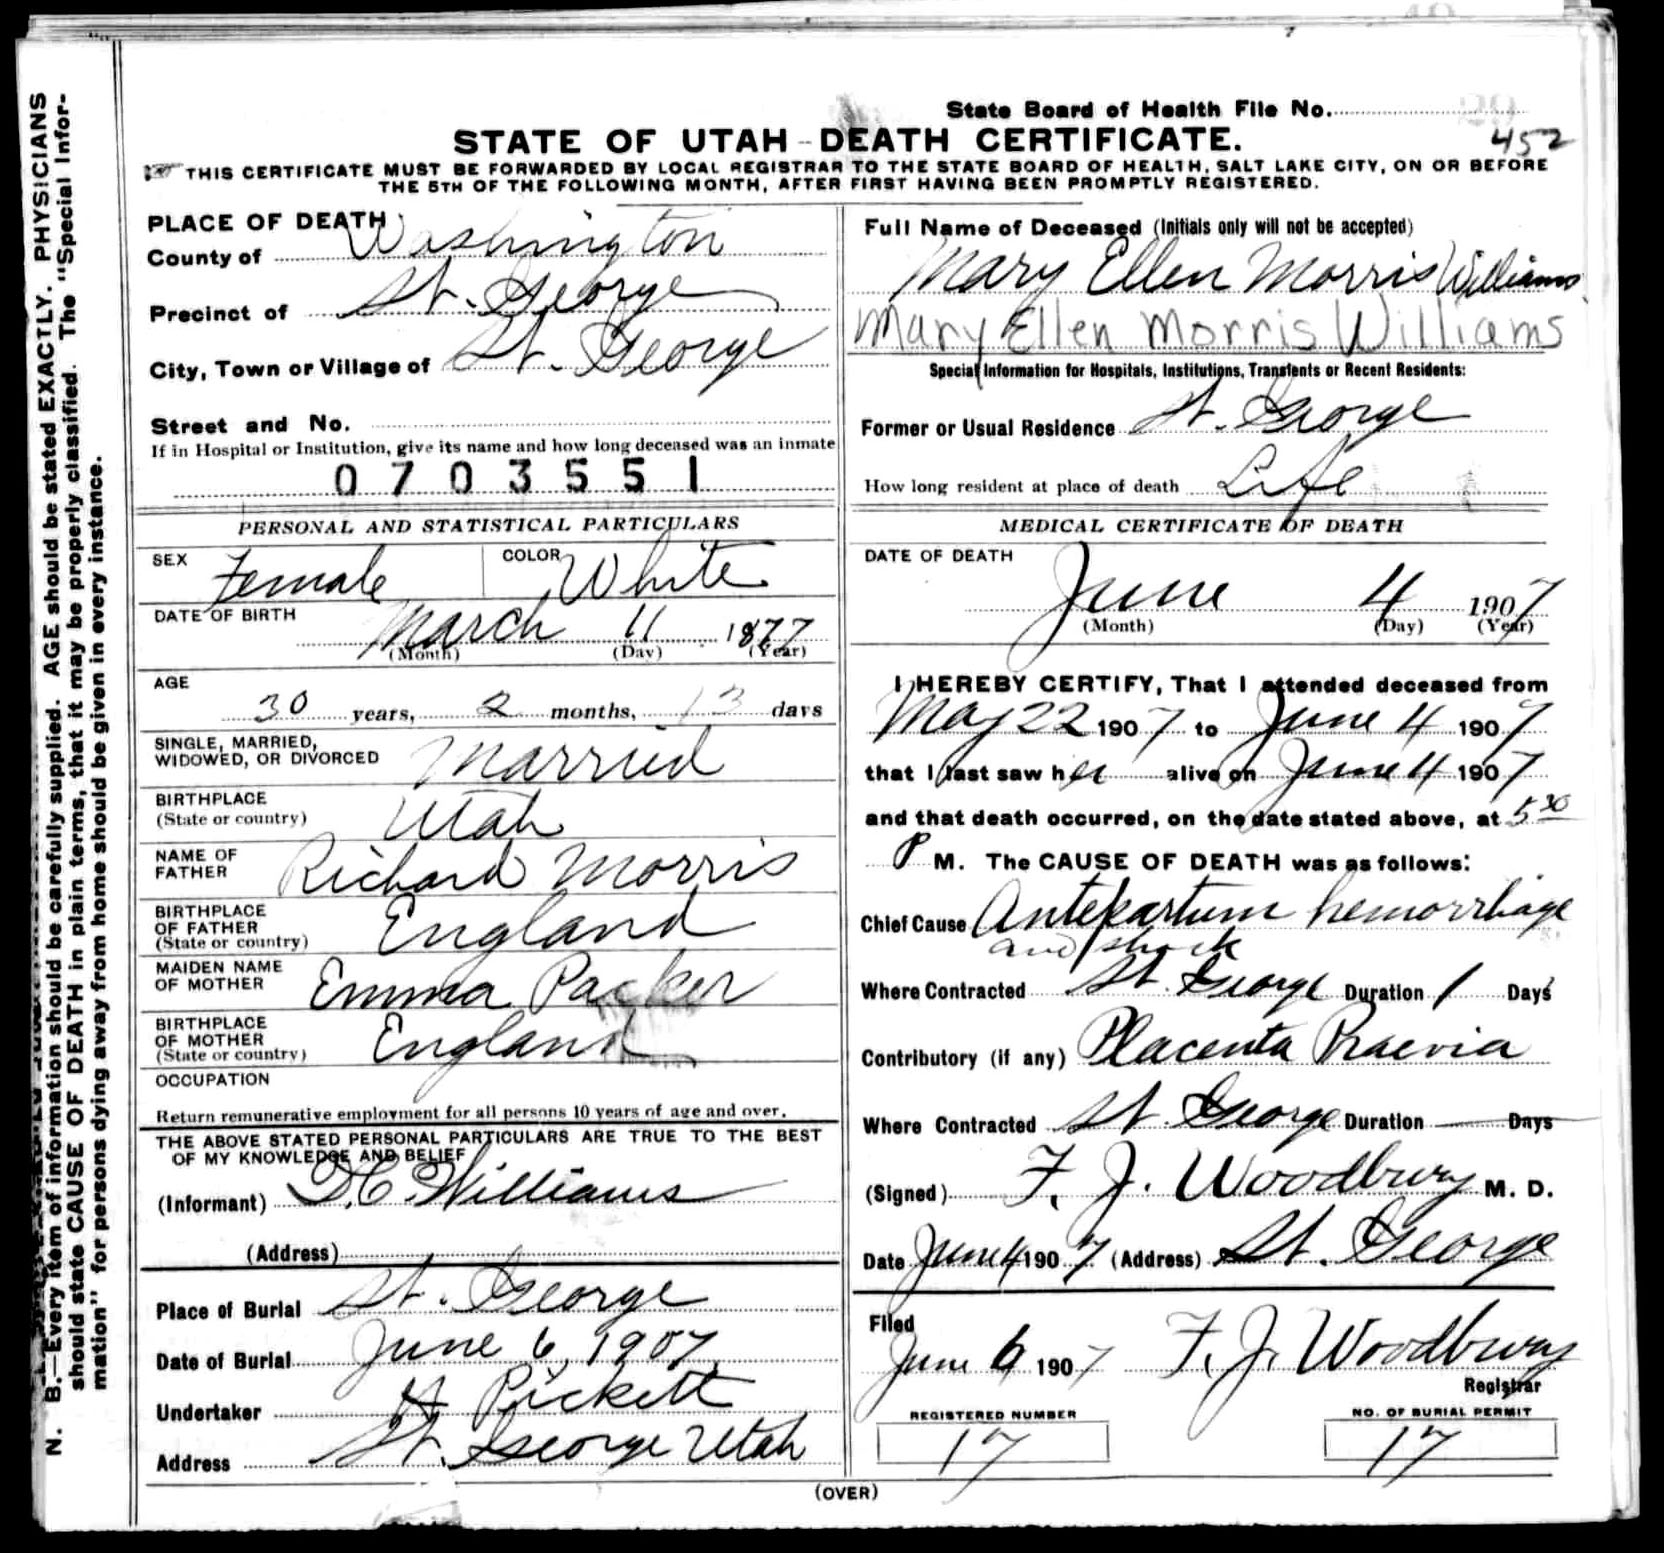 State Board of Health File No.
452
STATE OF UTAH - DEATH CERTIFICATE.
THIS CERTIFICATE MUST BE FORWARDED BY LOCAL REGISTRAR TO THE STATE BOARD OF HEALTH, SALT LAKE CITY, ON OR BEFORE
THE 5TH OF THE FOLLOWING MONTH, AFTER FIRST HAVING BEEN PROMPTLY REGISTERED.
N. B.—Every item of information should be carefully supplied. AGE should be stated EXACTLY. PHYSICIANS
should state CAUSE OF DEATH in plain terms, that it may be properly classified. The "Special Infor-
mation" for persons dying away from home should be given in every instance.
PLACE OF DEATH
County of Washington
Precinct of St. George
City, Town or Village of St. George
Street and No.
If in Hospital or Institution, give its name and how long deceased was an inmate
0703551
PERSONAL AND STATISTICAL PARTICULARS
SEX Female COLOR White
DATE OF BIRTH
March 11 1877
(Month) (Day) (Year)
AGE
30 years, 2 months, 13 days
SINGLE, MARRIED,
WIDOWED, OR DIVORCED Married
BIRTHPLACE
(State or country) Utah
NAME OF
FATHER Richard Morris
BIRTHPLACE
OF FATHER
(State or country) England
MAIDEN NAME
OF MOTHER Emma Packer
BIRTHPLACE
OF MOTHER
(State or country) England
OCCUPATION
Return remunerative employment for all persons 10 years of age and over.
THE ABOVE STATED PERSONAL PARTICULARS ARE TRUE TO THE BEST
OF MY KNOWLEDGE AND BELIEF
(Informant) D.C. Williams
(Address)
Place of Burial St. George
Date of Burial June 6, 1907
Undertaker A Pickett
Address St. George Utah
Full Name of Deceased (Initials only will not be accepted)
Mary Ellen Morris Williams
Mary Ellen Morris Williams
Special Information for Hospitals, Institutions, Transients or Recent Residents:
Former or Usual Residence St. George
How long resident at place of death Life
MEDICAL CERTIFICATE OF DEATH
DATE OF DEATH
June 4 1907
(Month) (Day) (Year)
I HEREBY CERTIFY, That I attended deceased from
May 22 1907 to June 4 1907
that I last saw her alive on June 4 1907
and that death occurred, on the date stated above, at 5 30
P M. The CAUSE OF DEATH was as follows:
Chief Cause Antepartum hemorrhage
and shock
Where Contracted St. George Duration 1 Days
Contributory (if any) Placenta Praevia
Where Contracted St. George Duration Days
(Signed) F. J. Woodbury M. D.
Date June 4 1907 (Address) St. George
Filed
June 6 1907 F. J. Woodbury
Registrar
REGISTERED NUMBER NO. OF BURIAL PERMIT
17 17
(OVER)